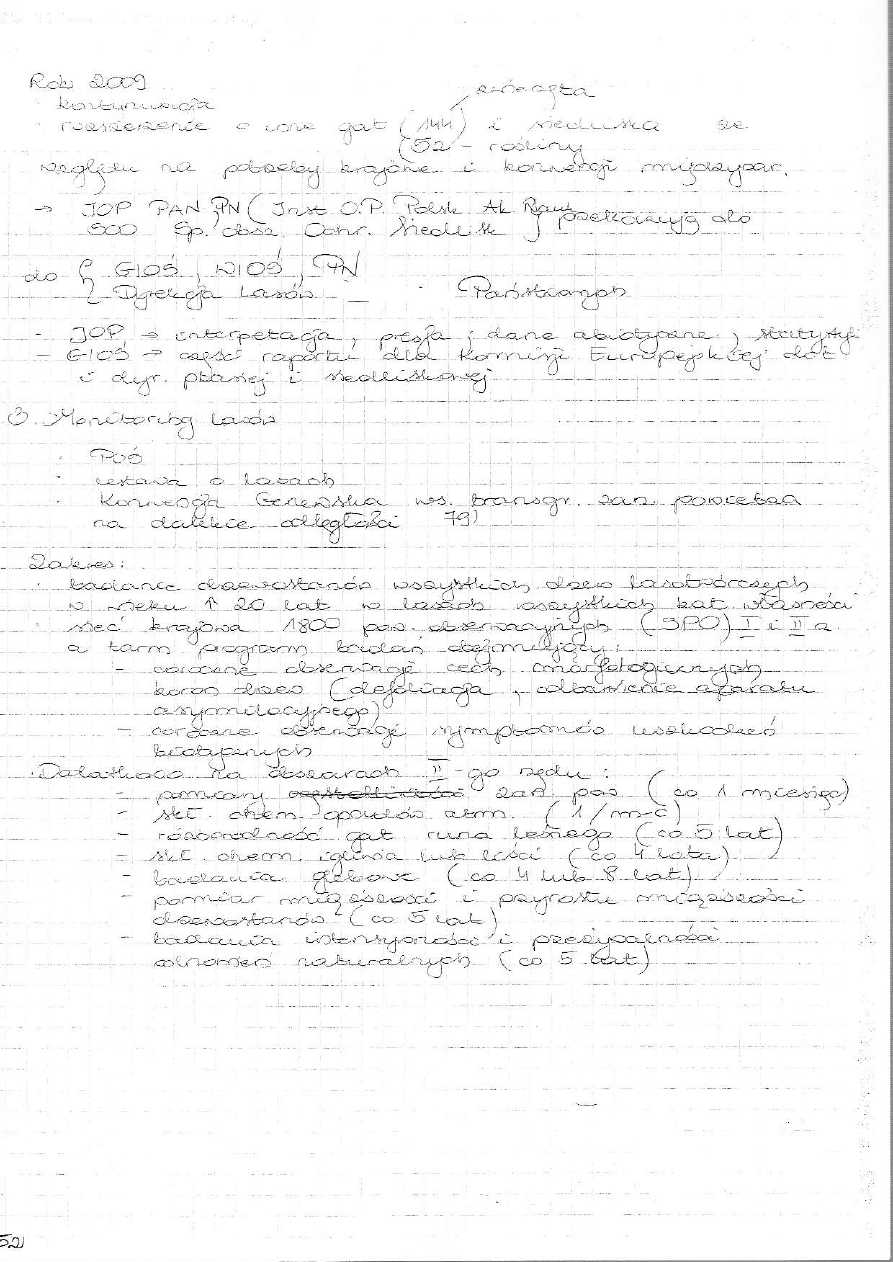 Rok 2009
· kontynuacja
zwierzęta
· rozszerzenie o inne gat (144) i siedliska ze
(52 - rośliny
względu na potrzeby krajowe i konwencji międzynar.
→ IOP PAN, PN (Inst O.P. Polsk Ak Nauk
500 Sp. obsz. Ochr. Siedlisk } przekazują do
do { GIOŚ, WIOŚ, PN
Dyrekcja Lasów Państwowych
- IOP → interpretacja, presja i dane abiotyczne, statystyki
- GIOŚ → części raportu dla Komisji Europejskiej dot
i dyr. ptasiej i siedliskowej
3. Monitoring lasów
· POŚ
· ustawa o lasach
· Konwencja Genewska ws. transgr. zan. powietrza
na dalekie odległości 79)
Zakres:
· badanie drzewostanów wszystkich drzew lasotwórczych
w wieku ↑ 20 lat w lasach wszystkich kat własności
· sieć krajowa 1800 pow. obserwacyjnych (SPO) I i II rz
a tam program badań obejmujący:
- coroczne obserwacje cech morfologicznych
koron drzew (defoliacja, odbarwienie aparatu
asymilacyjnego)
- coroczne obserwacje symptomów uszkodzeń
biotycznych
· Dodatkowo na obszarach II-go rzędu:
- pomiary zan. pow (co 1 miesiąc)
- skł. chem. opadów atm. (1/m-c)
- różnorodność gat runa leśnego (co 5 lat)
- skł. chem. igliwia lub liści (co 4 lata)
- badania glebowe (co 4 lub 8 lat)
- pomiar miąższości i przyrostu miąższości
drzewostanów (co 5 lat)
- badania intensywności i przeżywalności
odnowień naturalnych (co 5 lat)
52